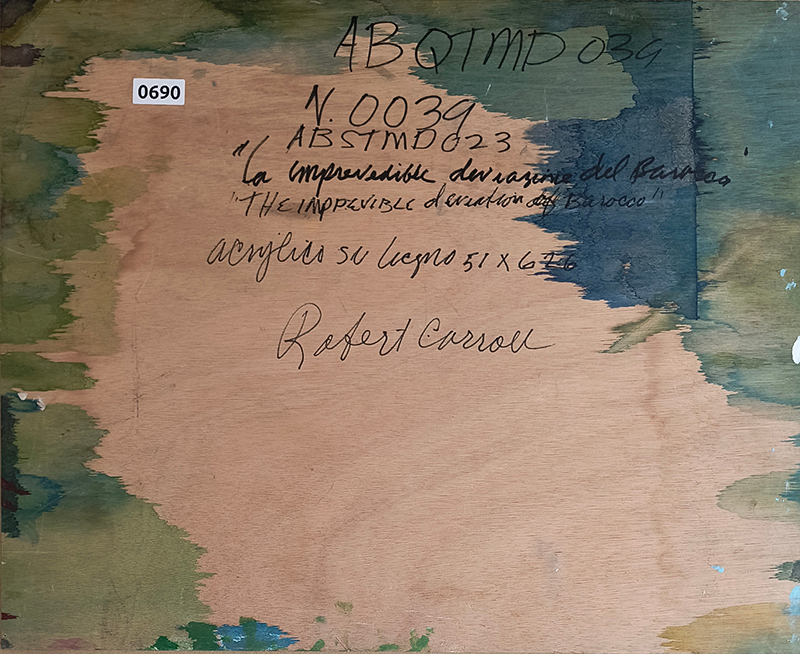 ABQTMD 039
0690
N. 0039
ABSTMD 023
"La imprevedible deviazione del Barocco"
"THE IMPREVIBLE deveation of Barocco"
acrylico su legno 51 x 62 6
Robert Carroll